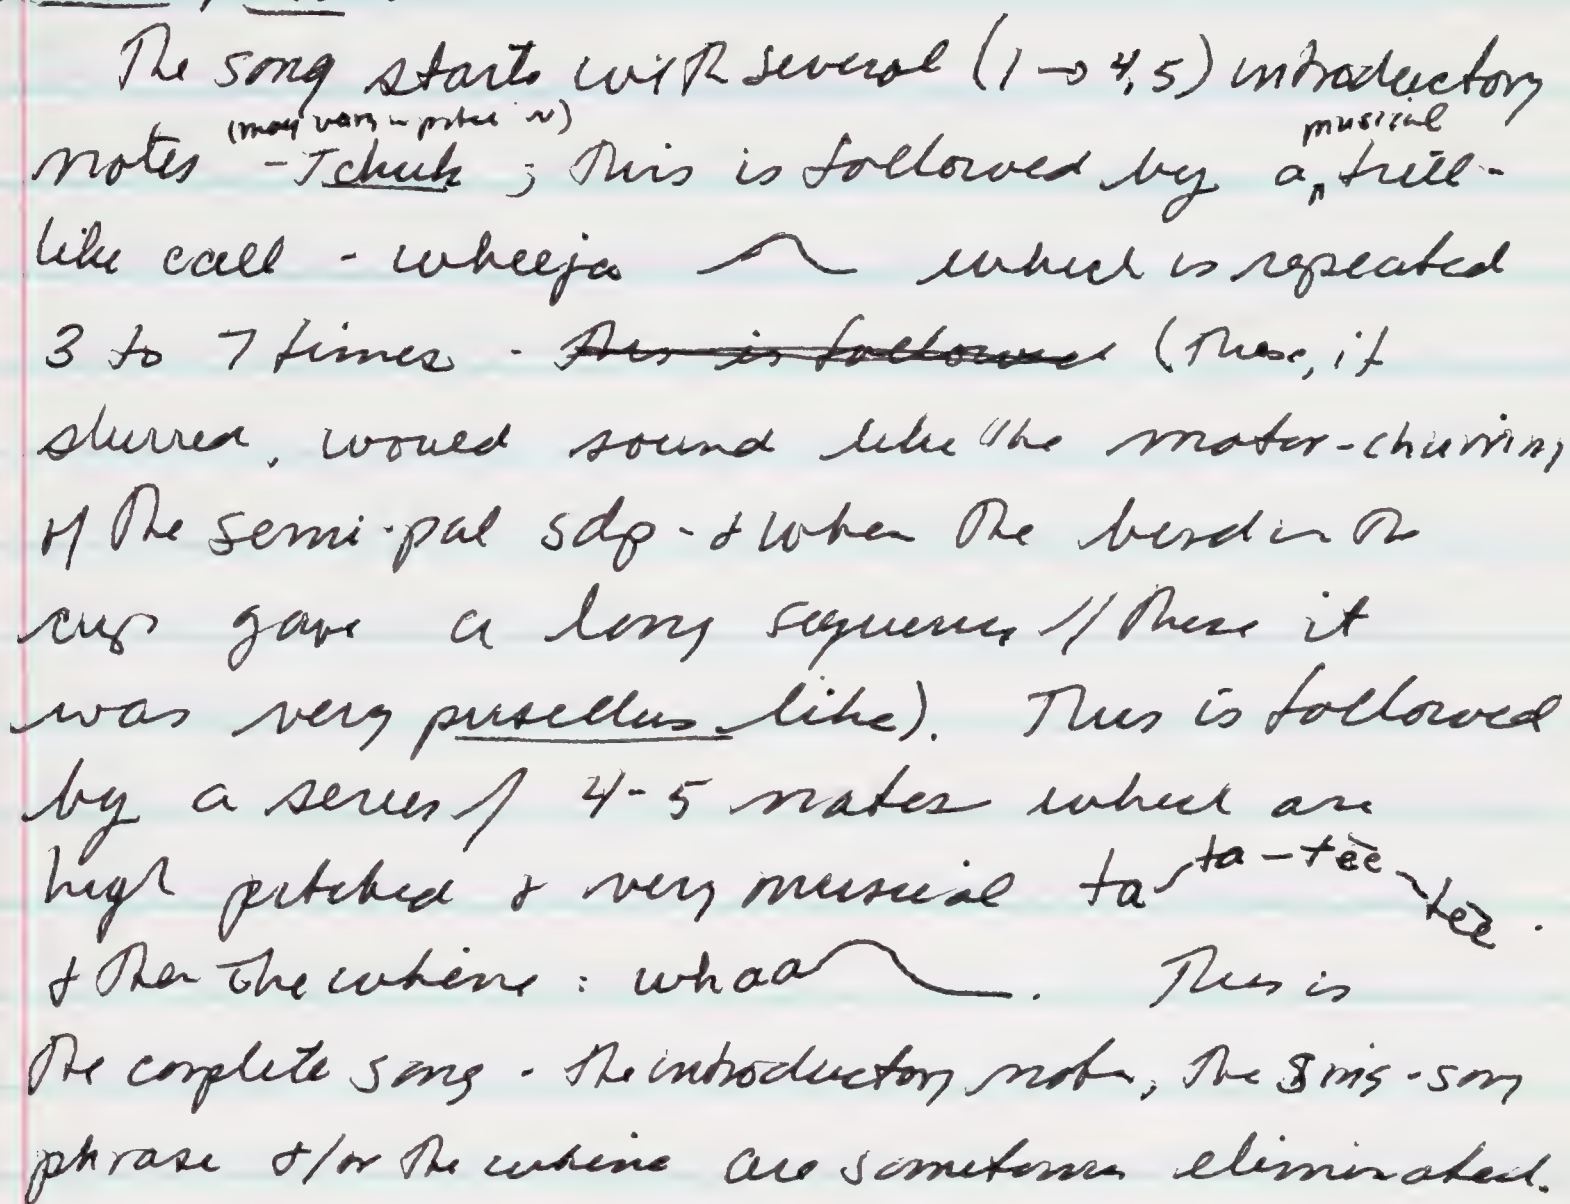 The song starts with several (1→4,5) introductory
(may vary in pitch ~) musical
notes - Tchuk ; This is followed by a trill-
like call - wheeja which is repeated
3 to 7 times. This is followed (These, if
slurred, would sound like the motor-churring
of the semi-pal sdp - & when the bird in the
cup gave a long sequence of these it
was very pusillus like). This is followed
by a series of 4-5 notes which are
high pitched & very musical ta ta-tee tee.
& then the whine : whaa . This is
the complete song. The introductory note, the sing-song
phrase &/or the whine are sometimes eliminated.